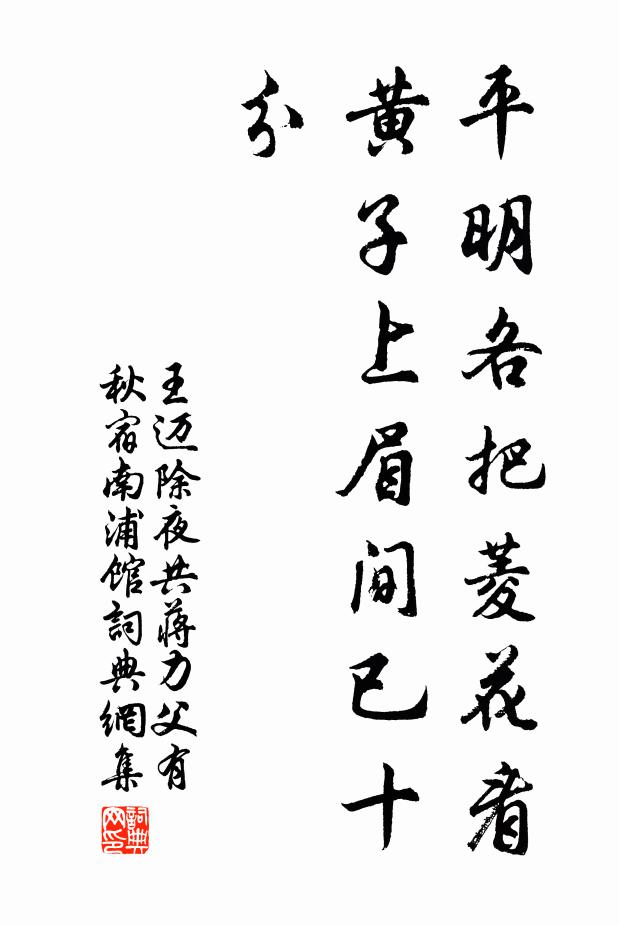 平明各把菱花看
黄子上眉间已十
分
王迈除夜共蔣力父有
秋宿南浦馆詞典網集
詞典
网印